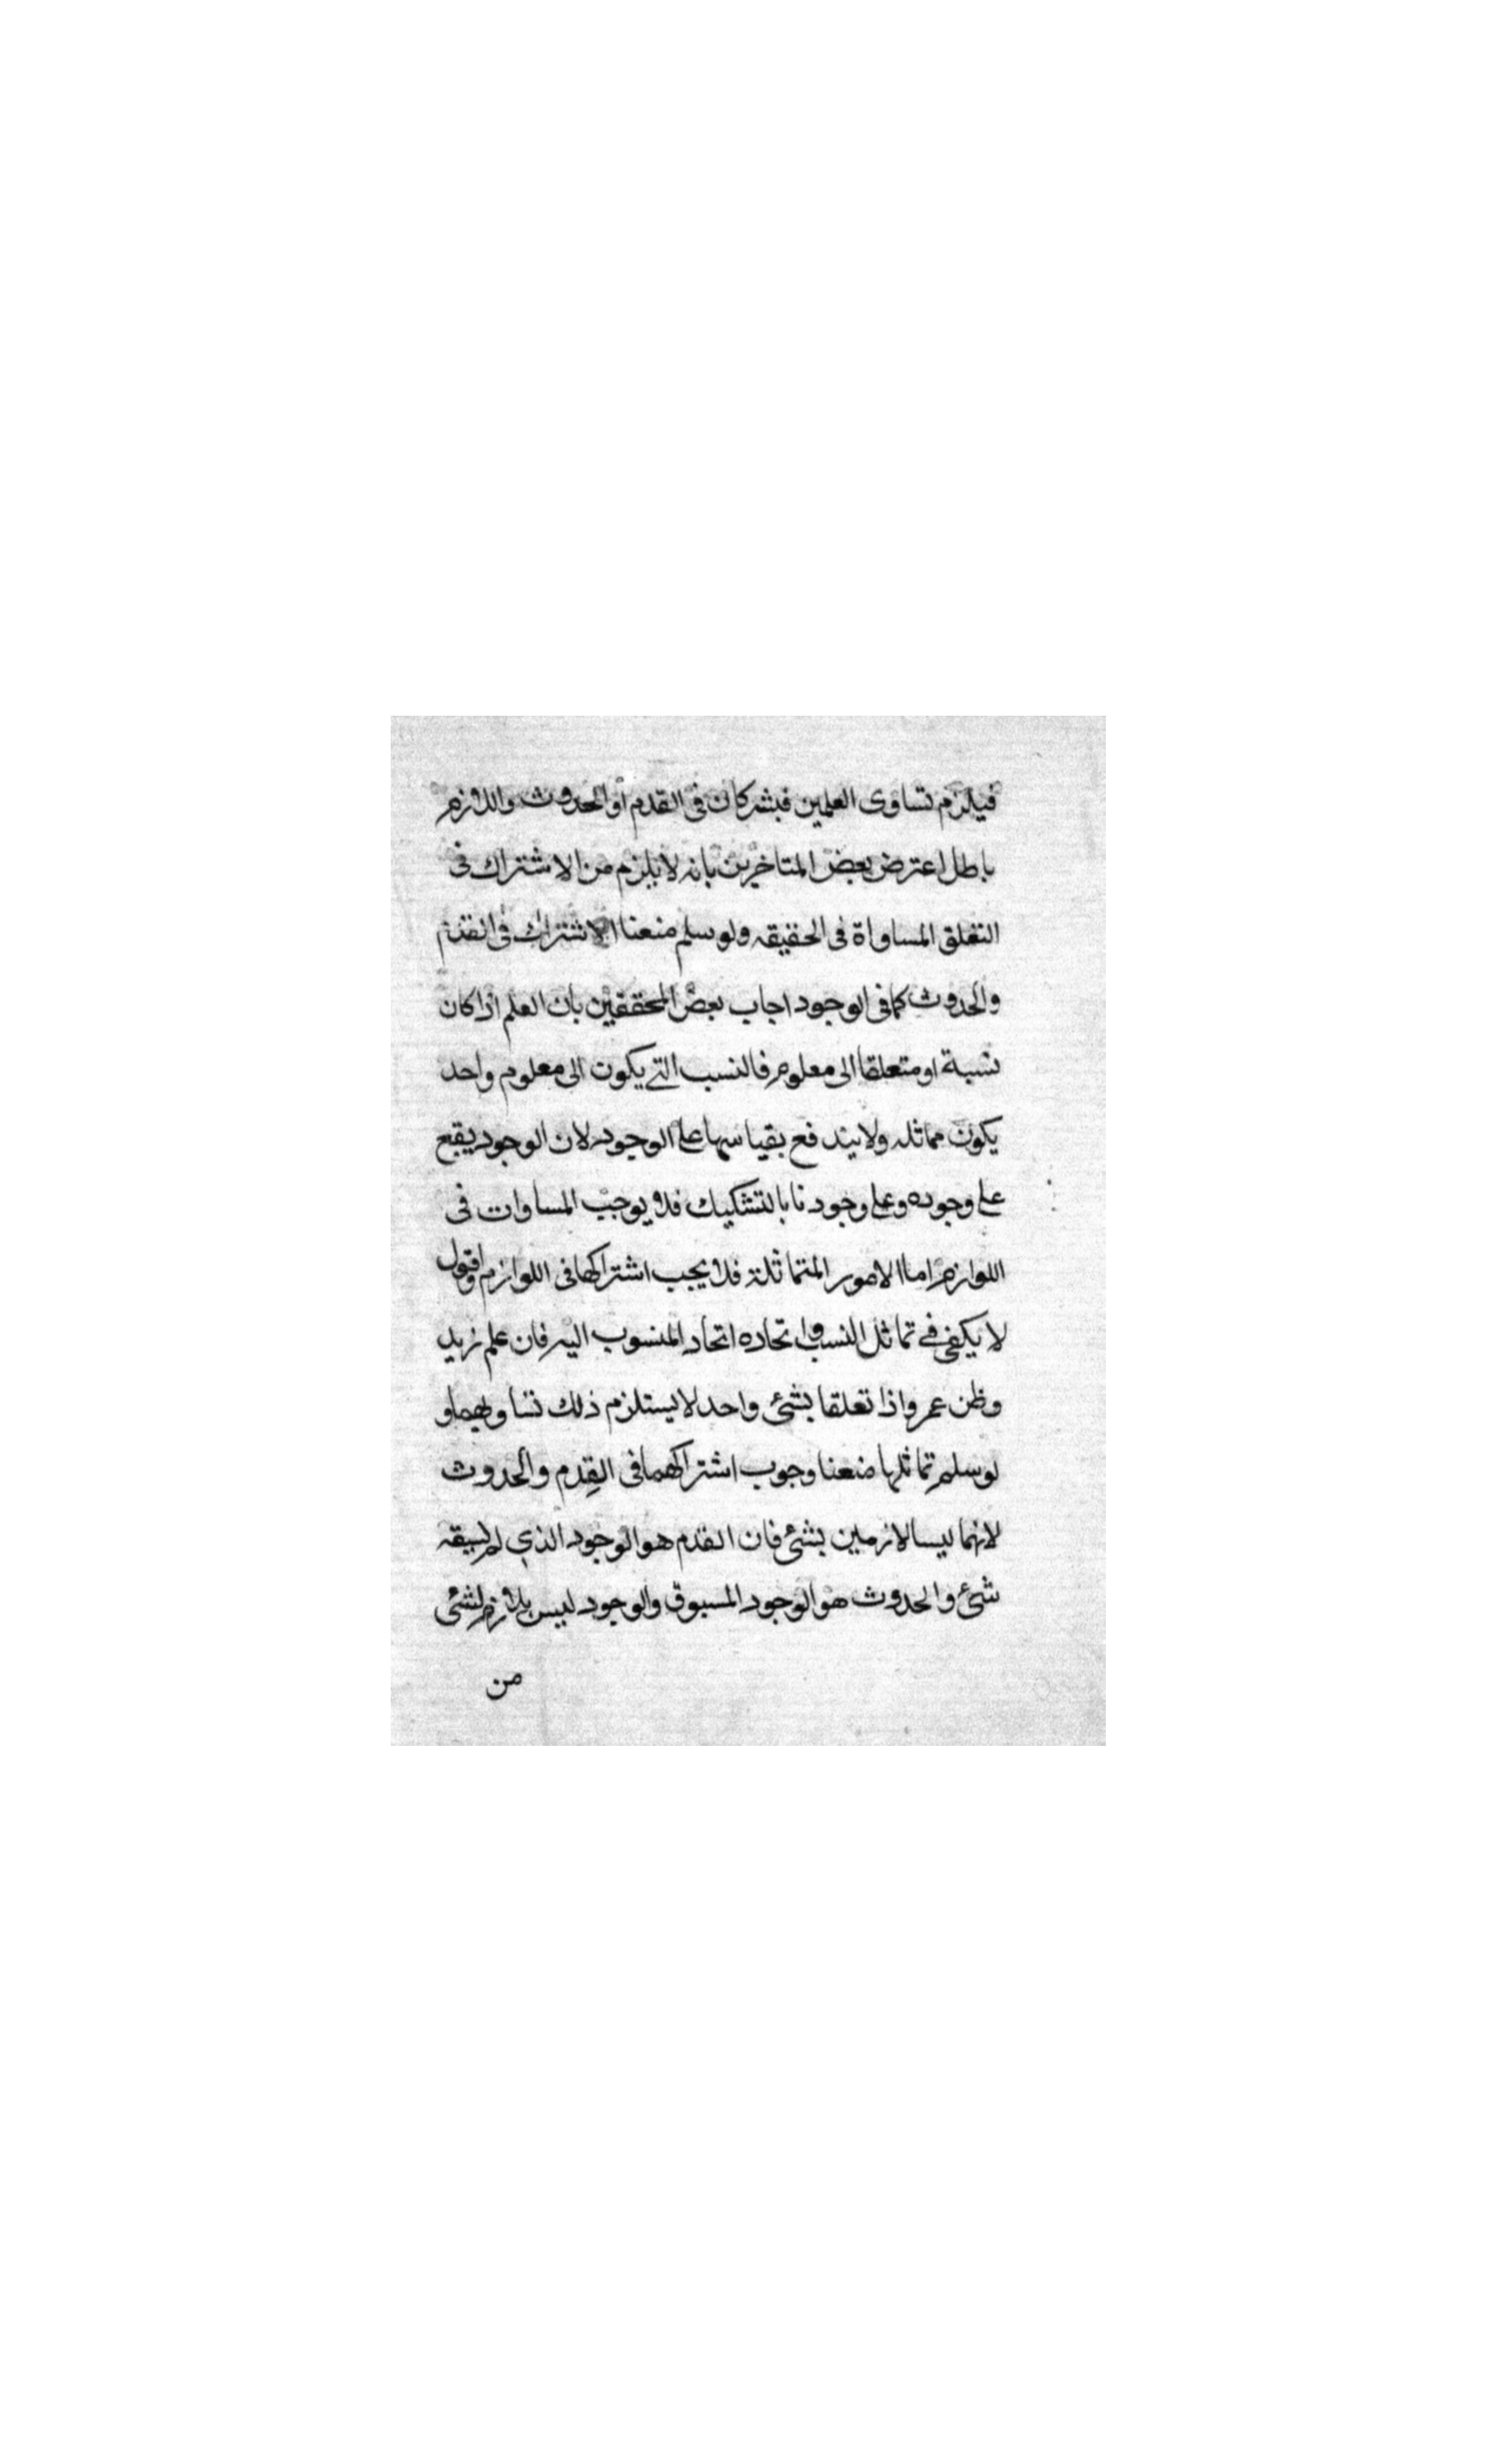 فيلزم تساوى العلمين فيشتركان فى القدم أو الحدوث واللازم
باطل اعترض بعض المتاخرين بانه لا يلزم من الاشتراك فى
التعلق المساواة فى الحقيقه ولو سلم منعنا الاشتراك فى القدم
والحدوث كما فى الوجود اجاب بعض المحققين بان العلم اذا كان
نسبة او متعلقا الى معلوم فالنسب التي يكون الى معلوم واحد
يكون مماثله ولا يندفع بقياسها على الوجود لان الوجود يقع
على وجوده وعلى وجودنا بالتشكيك فلا يوجب المساوات فى
اللوازم اما الامور المتماثلة فلا يجب اشتراكها فى اللوازم واقول
لا يكفى في تماثل النسب واتحاده اتحاد المنسوب اليه فان علم زيد
وظن عمرو اذا تعلقا بشئ واحد لا يستلزم ذلك تساويهما و
لو سلم تماثلها منعنا وجوب اشتراكهما فى القِدم والحدوث
لانهما ليسا لازمين بشئ فان القدم هو الوجود الذي لم يسبقه
شئ والحدوث هو الوجود المسبوق والوجود ليس بلازم لشئ
من